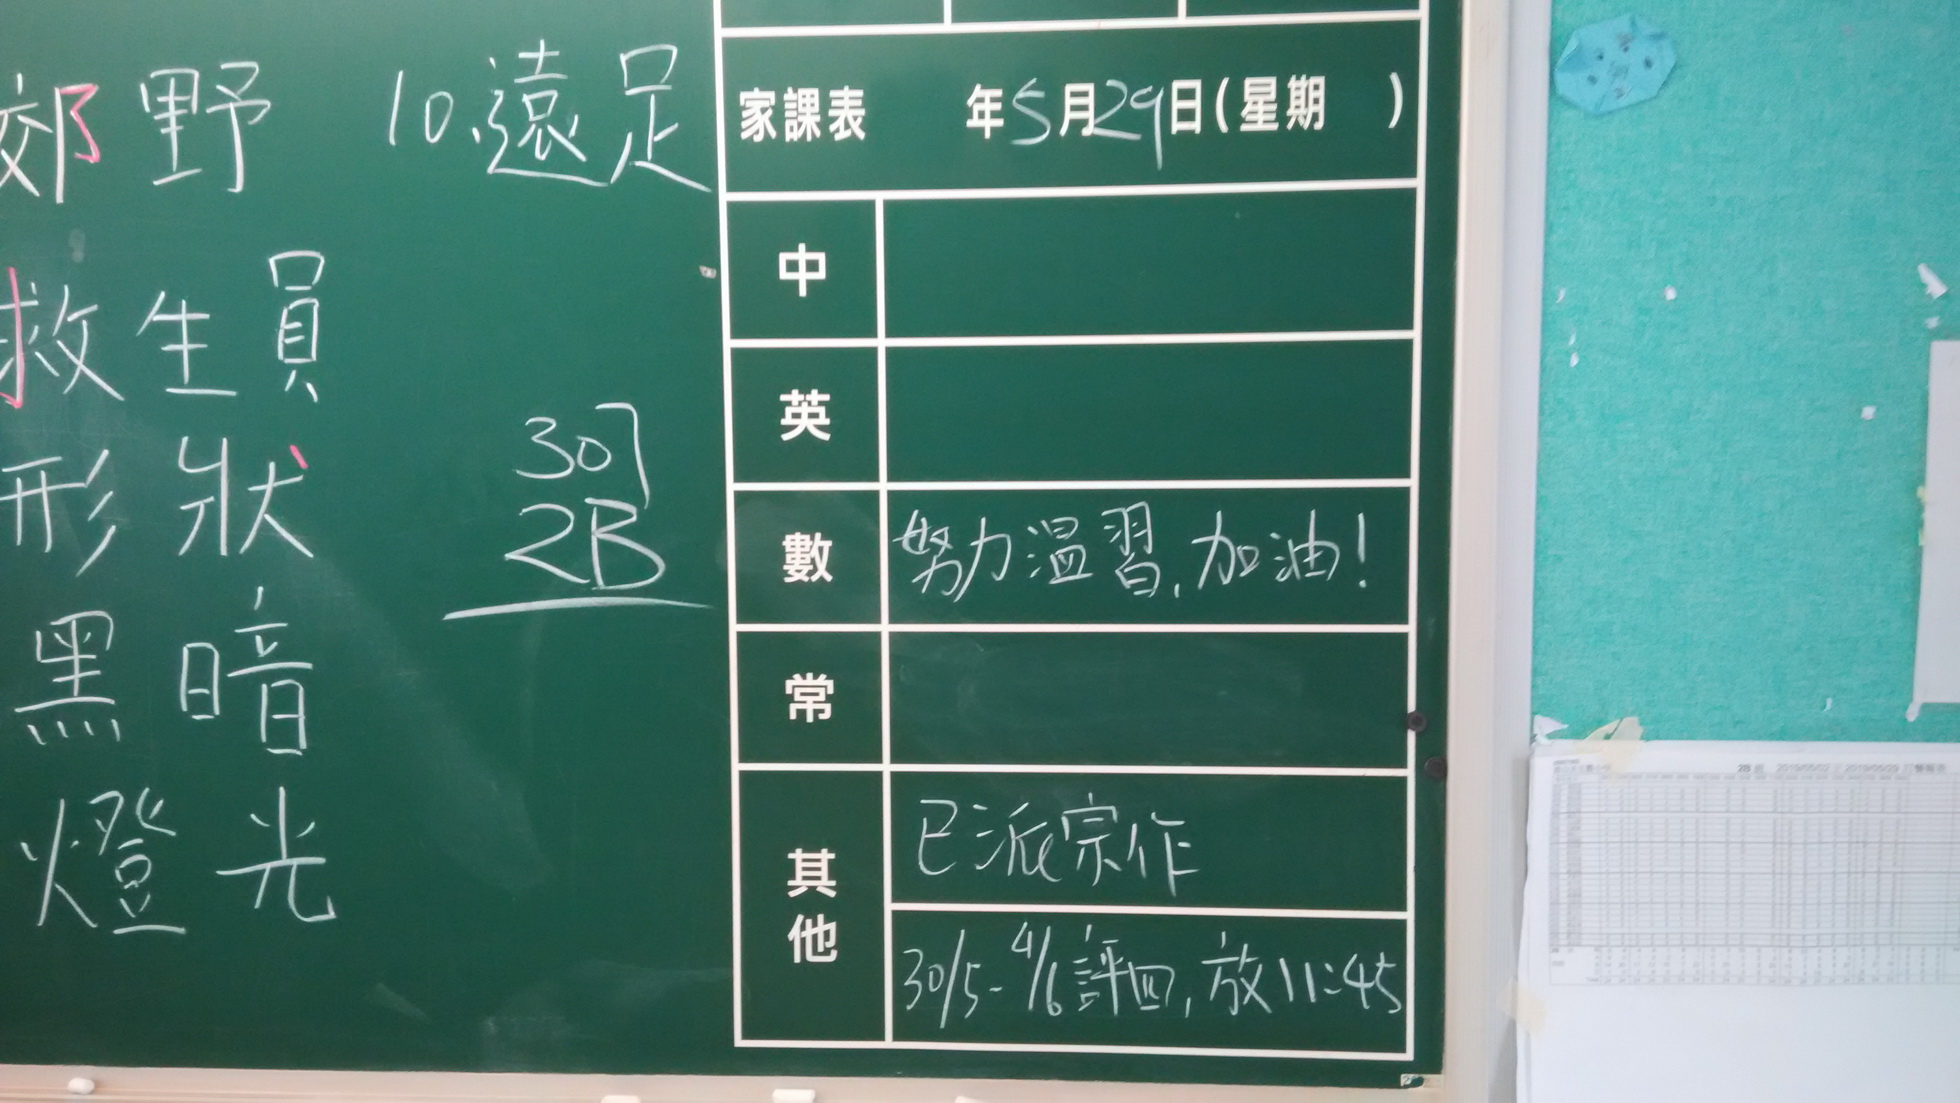 郊野 10.遠足
救生員
形狀
黑暗
燈光
307
2B
家課表 年5月29日(星期 )
中
英
數 努力溫習,加油!
常
其他 已派宗作
30/5-4/6評四,放11:45